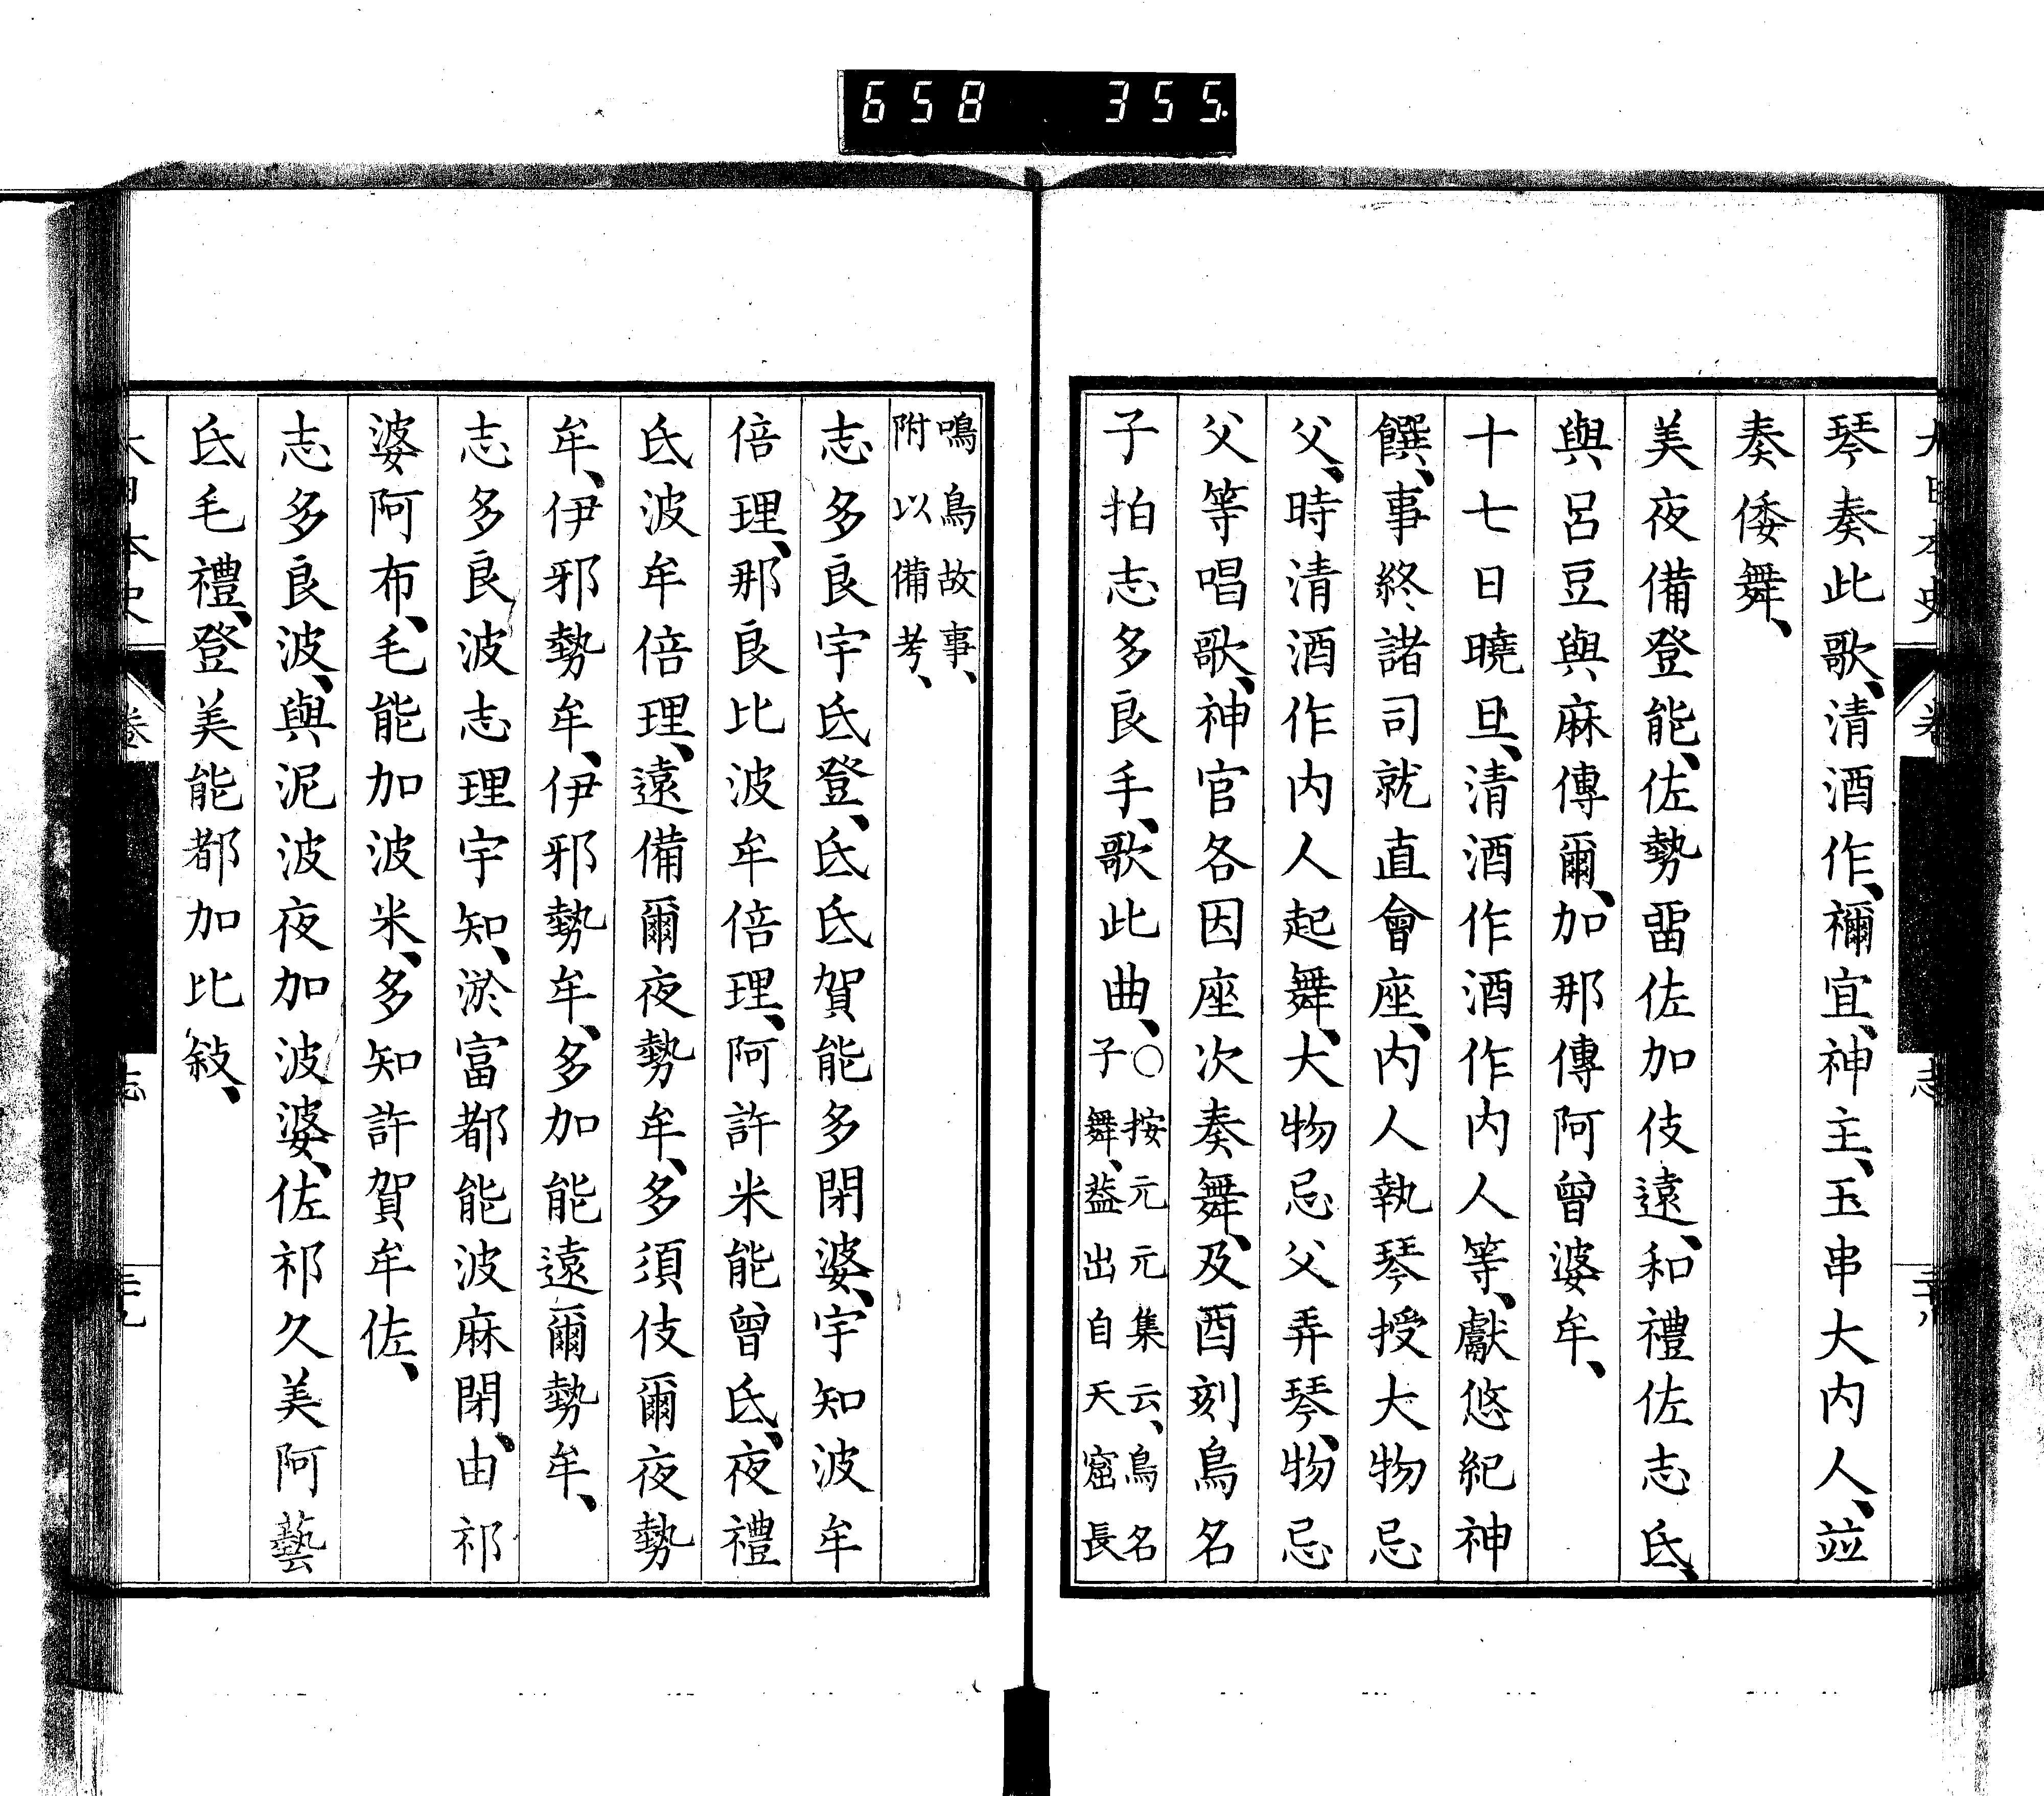 658 355
琴奏此歌、清酒作、禰宜、神主、玉串大内人、竝
奏倭舞、
美夜備登能、佐勢畱佐加伎遠、和禮佐志氐、
與呂豆與麻傳爾、加那傳阿曾婆牟、
十七日曉旦、清酒作酒作内人等、獻悠紀神
饌、事終、諸司就直會座、内人執琴授大物忌
父、時清酒作内人起舞、大物忌父弄琴、物忌
父等唱歌、神官各因座次奏舞、及酉刻鳥名
子拍志多良手、歌此曲、
〇按元元集云、鳥名
子舞、葢出自天窟長
鳴鳥故事、
附以備考、
志多良宇氐登、氐氐賀能多閇婆、宇知波牟
倍理、那良比波牟倍理、阿許米能曾氐、夜禮
氐波牟倍理、遠備爾夜勢牟、多須伎爾夜勢
牟、伊邪勢牟、伊邪勢牟、多加能遠爾勢牟、
志多良波志理宇知、淤富都能波麻閇、由祁
婆阿布、毛能加波米、多知許賀牟佐、
志多良波、與泥波夜加波婆、佐祁久美阿藝
氐毛禮、登美能都加比敍、